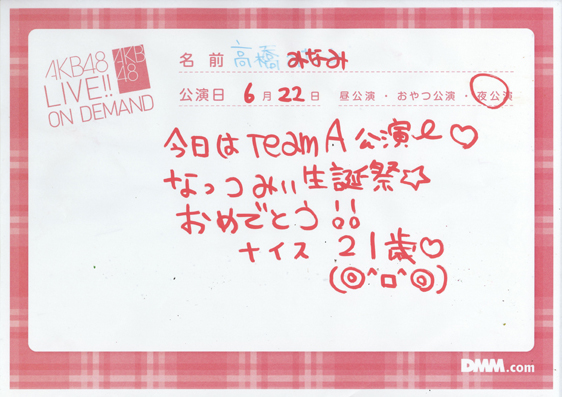 AKB48
LIVE!!
ON DEMAND
AKB
48
名前 高橋みなみ
公演日 6月22日 昼公演・おやつ公演・夜公演
今日はTeamA公演♡
なっつみぃ生誕祭☆
おめでとう!!
ナイス 21歳♡
(◎^ロ^◎)
DMM.com